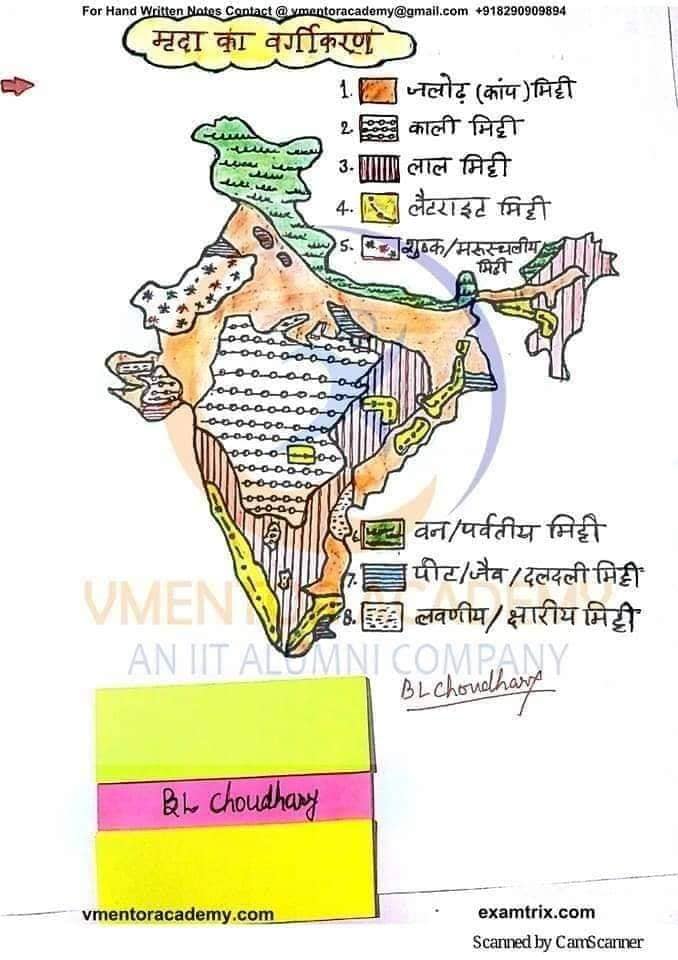 For Hand Written Notes Contact @ vmentoracademy@gmail.com +918290909894
मृदा का वर्गीकरण
1. जलोढ़ (कांप) मिट्टी
2. काली मिट्टी
3. लाल मिट्टी
4. लैटराइट मिट्टी
5. शुष्क/मरूस्थलीय
मिट्टी
6. वन/पर्वतीय मिट्टी
7. पीट/जैव/दलदली मिट्टी
8. लवणीय/क्षारीय मिट्टी
VMENTOR ACADEMY
AN IIT ALUMNI COMPANY
BL Choudhary
BL Choudhary
vmentoracademy.com
examtrix.com
Scanned by CamScanner